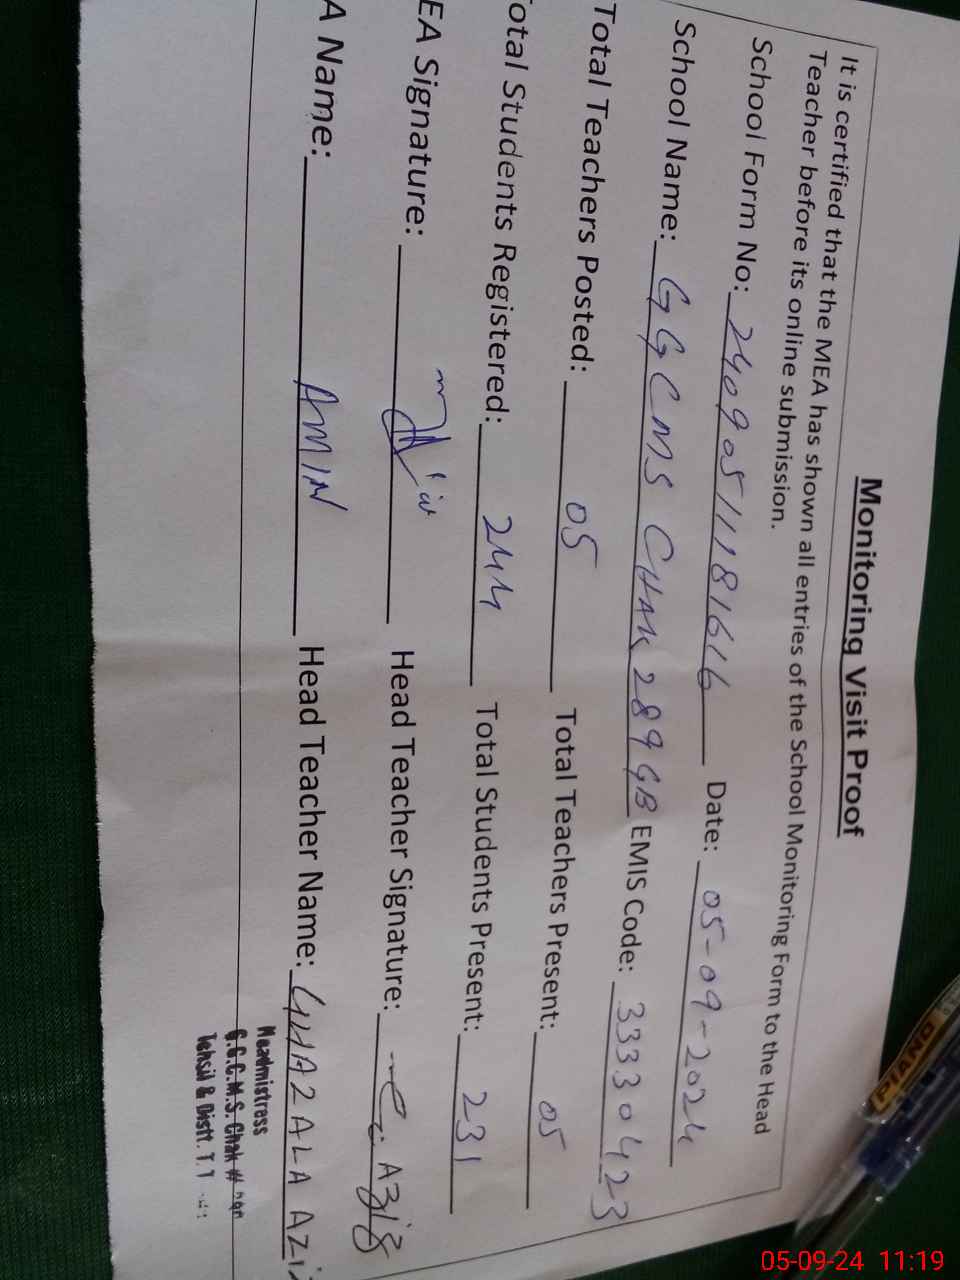 Monitoring Visit Proof
It is certified that the MEA has shown all entries of the School Monitoring Form to the Head
Teacher before its online submission.
School Form No: 240905111181616 Date: 05-09-2024
School Name: GGCMS CHAK 289 GB EMIS Code: 33330423
Total Teachers Posted: 05 Total Teachers Present: 05
otal Students Registered: 244 Total Students Present: 231
EA Signature: Head Teacher Signature:
A Name: AMIN Head Teacher Name: GHAZALA AZI
Headmistress
G.G.C.M.S. Chak #
Tehsil & Distt. T.T
PIANO
05-09-24 11:19